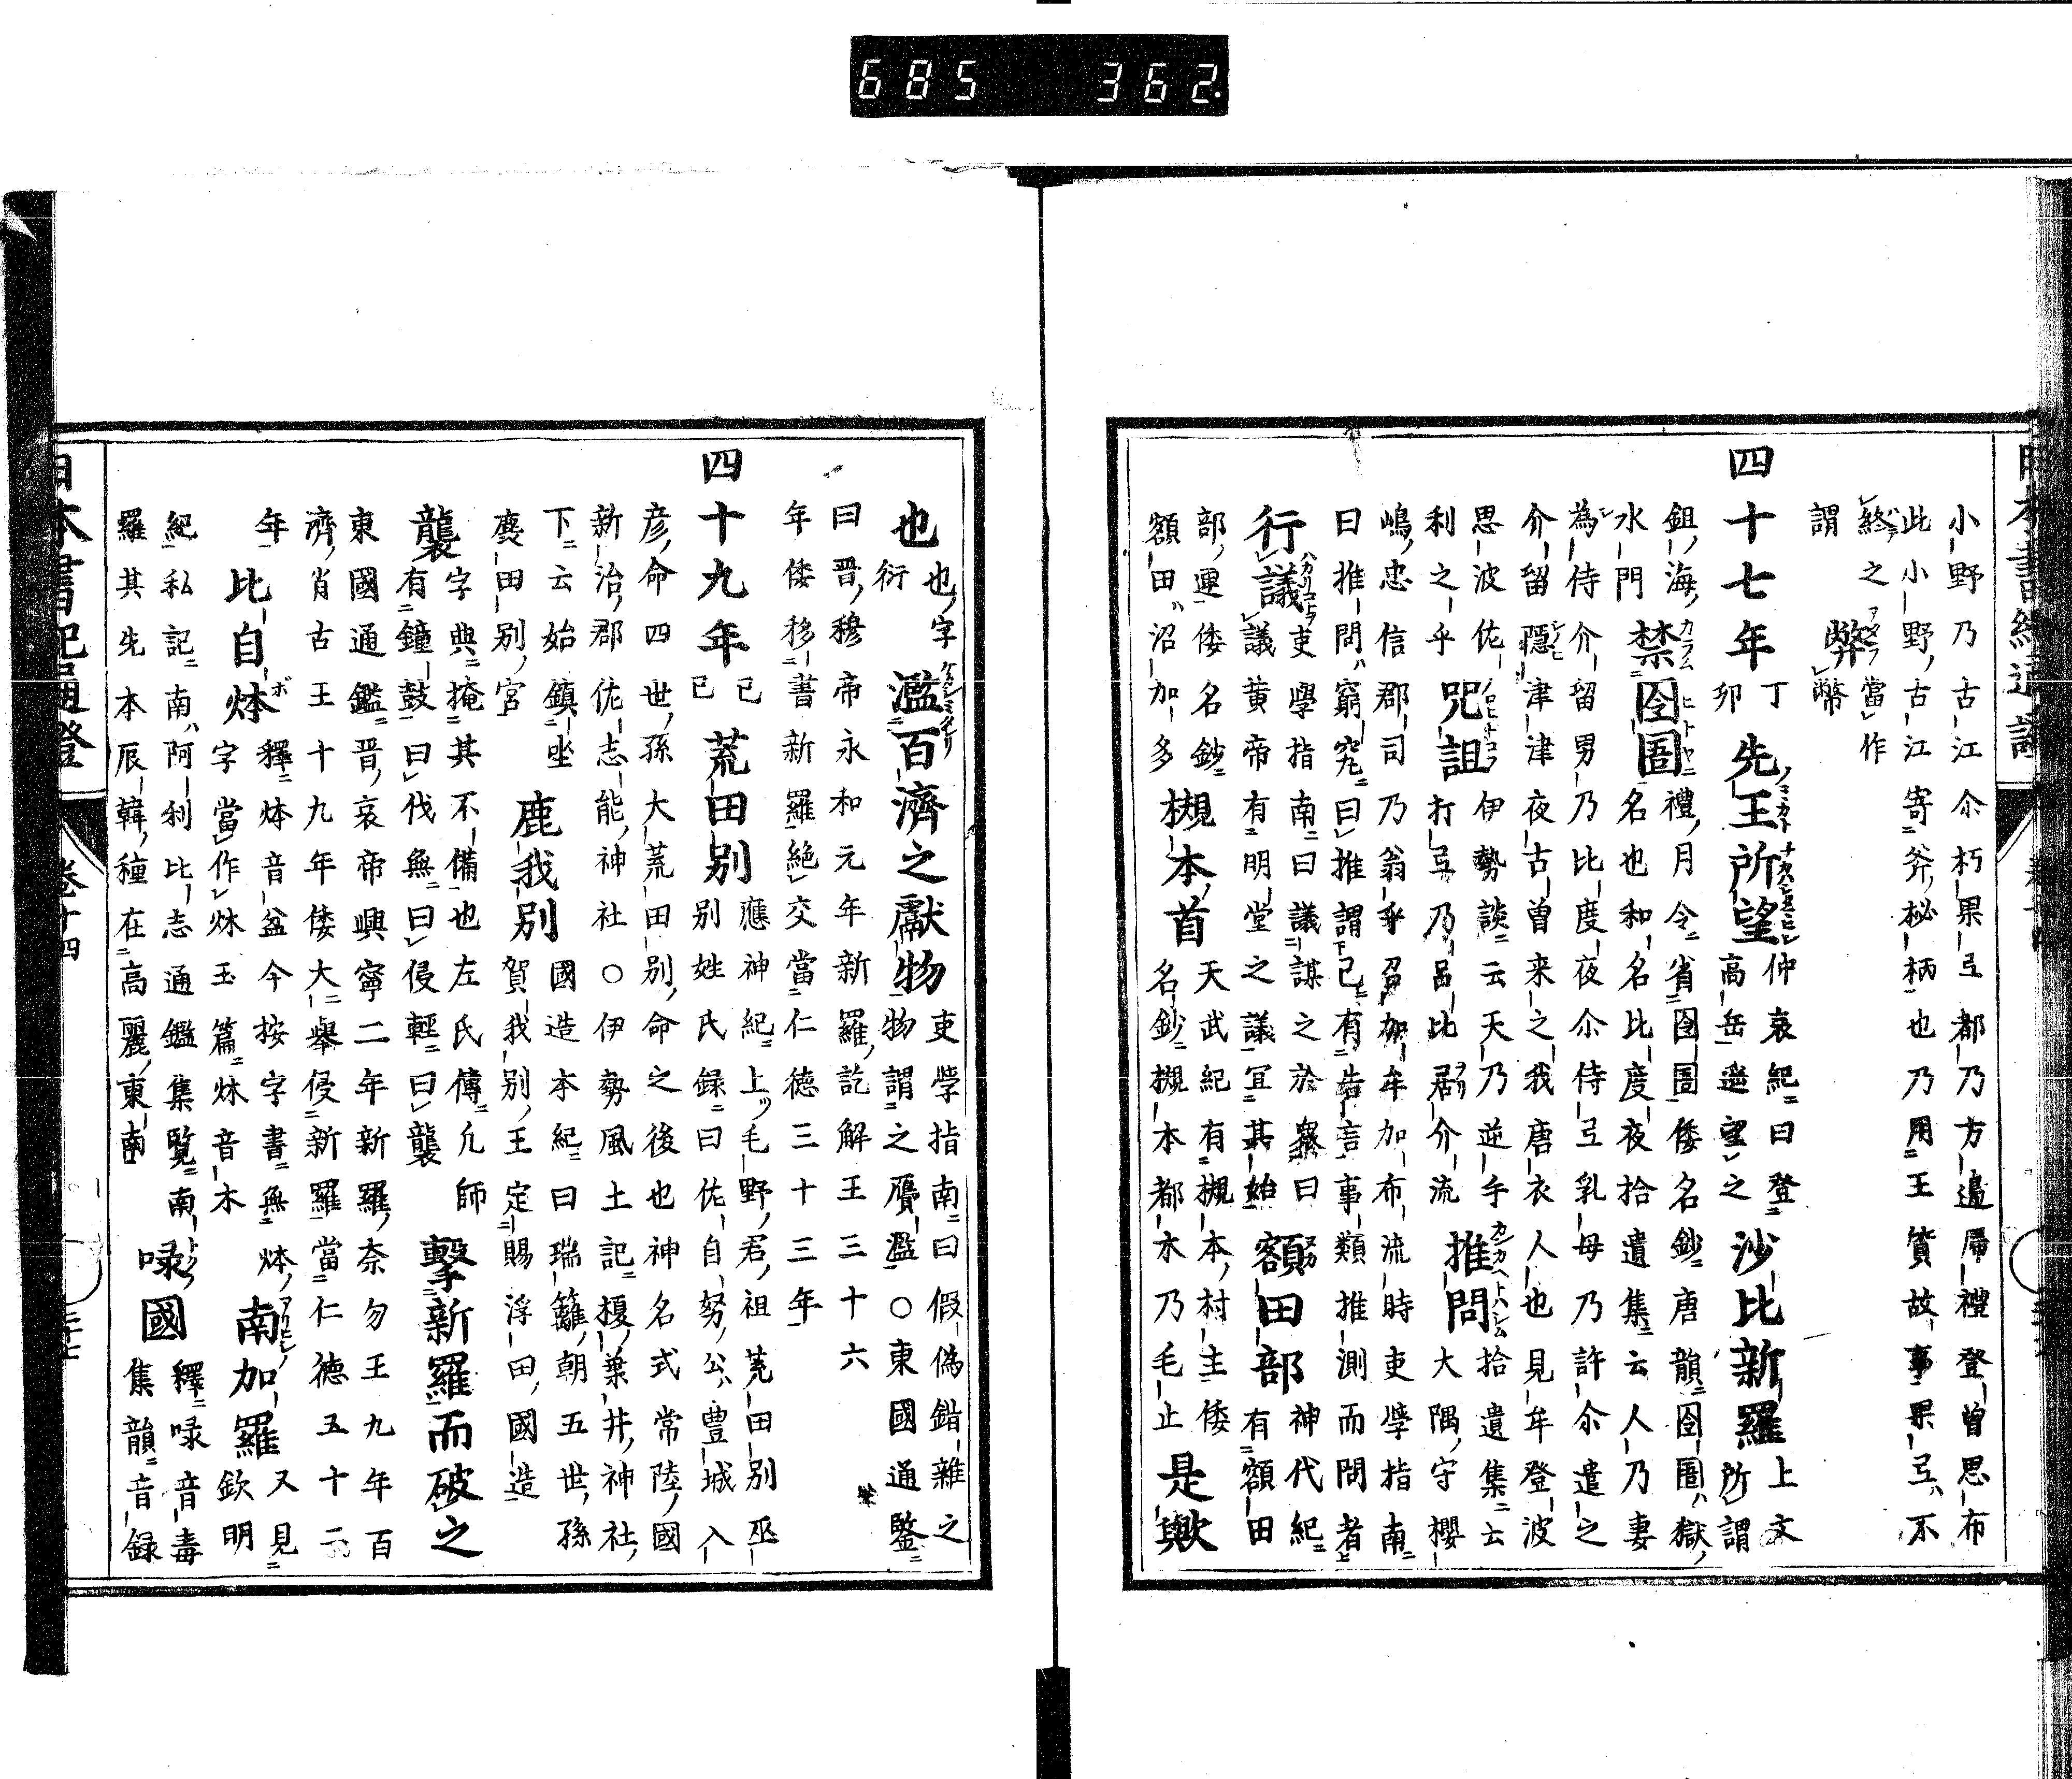 685 362.
小野乃古江尒朽果弖都乃方邉帰禮登曽思布
此小野古江寄斧秘柄也乃用王質故事果弖不
終之 弊 當作
謂 幣
四十七年 丁卯 先王所望 仲哀紀曰登高岳遥望之 沙比新羅 上文所謂
鉏海 禁囹圄 禮月令省囹圄倭名鈔唐韻囹圄獄
水門 名也和名比度夜拾遺集云人乃妻
為侍介留男乃比度夜尒侍弖乳母乃許尒遣之
介留隠津津夜古曽来之我唐衣人也見牟登波
思波佐 伊勢談云天乃逆手 拾遺集云
利之乎 咒詛 打弖乃呂比居介流 推問 大隅守櫻
嶋忠信郡司乃翁乎召加牟加布流時吏學指南
曰推問窮究曰推謂已有告言事類推測而問者
行議 吏學指南曰議謀之於衆曰議黄帝有明堂之議宜其始 額田部 神代紀有額田
部連倭名鈔 槻本首 天武紀有槻本村主倭
額田沼加多 名鈔槻本都木乃毛止 是歟
也 也字衍 濫百濟之獻物 吏學指南曰假偽錯雜之物謂之贋濫○東國通鑒
曰晋穆帝永和元年新羅訖解王三十六
年倭移書新羅絶交當仁德三十三年
四十九年 己巳 荒田別 應神紀上毛野君祖荒田別巫別姓氏録曰佐自努公豊城入
彦命四世孫大荒田別命之後也神名式常陸國
新治郡佐志能神社○伊勢風土記榎兼井神社
下云始鎮坐 鹿我別 國造本紀曰瑞籬朝五世孫
麑田別宮 賀我別王定賜浮田國造
襲 字典掩其不備也左氏傳凡師有鐘鼓曰伐無曰侵輕曰襲 擊新羅而破之
東國通鑑晋哀帝興寧二年新羅奈勿王九年百
濟肖古王十九年倭大舉侵新羅當仁德五十二
年 比自㶱 釋㶱音盆今按字書無㶱字當作㶱玉篇㶱音木 南加羅 又見欽明
紀私記南阿利比志通鑑集覧南 㖨國 釋㖨音毒
羅其先本辰韓種在高麗東南 集韻音録
日本書紀通證 卷十四 三十七